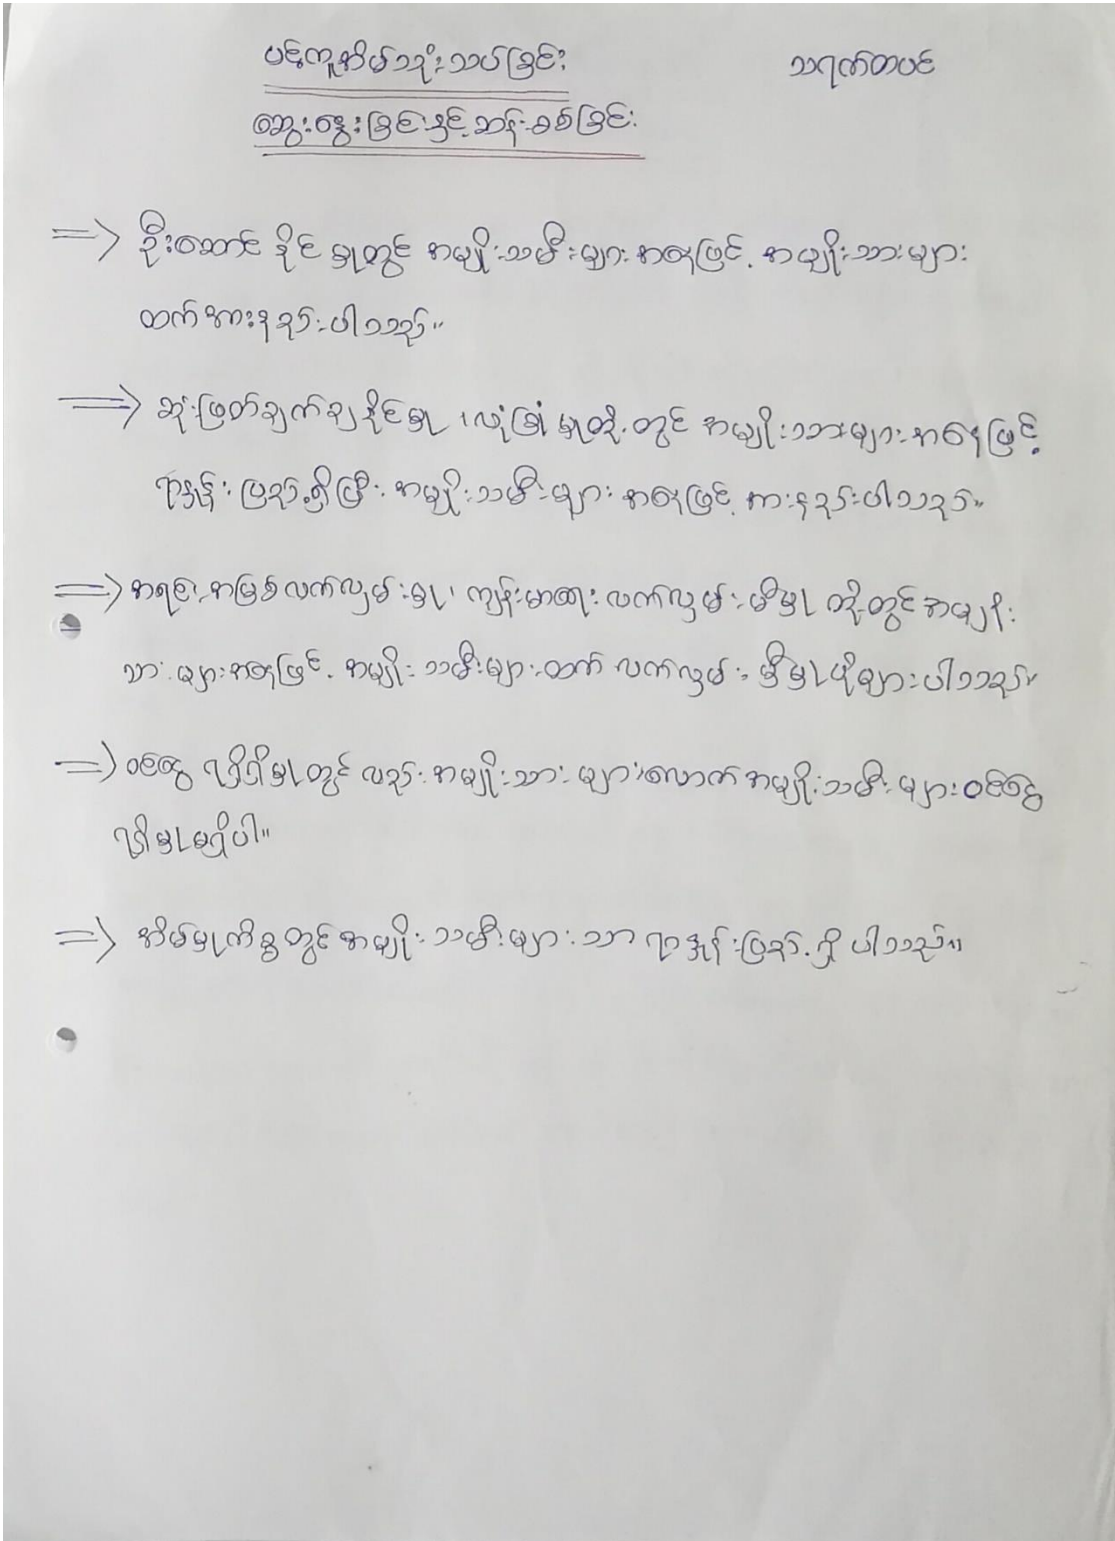 ပင့်ကူအိမ်သုံးသပ်ခြင်း
သရက်တပင်
ဆွေးနွေးခြင်းနှင့်ဆန်းစစ်ခြင်း
⇒ ဦးဆောင်နိုင်မှုတွင် အမျိုးသမီးများအနေဖြင့် အမျိုးသားများ
ထက်အားနည်းပါသည်။
⇒ ဆုံးဖြတ်ချက်ချနိုင်မှု ၊ လုံခြုံမှုတို့တွင် အမျိုးသားများအနေဖြင့်
ရာနှုန်းပြည့်ရှိပြီး အမျိုးသမီးများ အနေဖြင့် အားနည်းပါသည်။
⇒ အရင်းအမြစ်လက်လှမ်းမှု၊ ကျန်းမာရေးလက်လှမ်းမီမှု တို့တွင်အမျိုး
သားများအနေဖြင့် အမျိုးသမီးများထက် လက်လှမ်းမှီမှုပိုများပါသည်။
⇒ ဝင်ငွေ ရရှိရှိမှုတွင် လည်းအမျိုးသားများလောက်အမျိုးသမီးများဝင်ငွေ
ရရှိမှုမရှိပါ။
⇒ အိမ်မှုကိစ္စတွင်အမျိုးသမီးများသာ ရာနှုန်းပြည့်ရှိပါသည်။